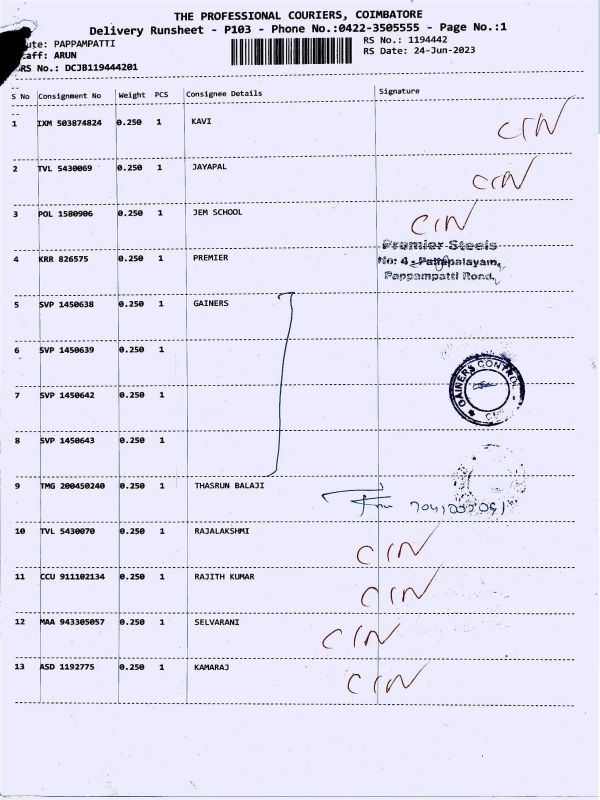 THE PROFESSIONAL COURIERS, COIMBATORE
Delivery Runsheet - P103 - Phone No.:0422-3505555 - Page No.:1
ute: PAPPAMPATTI
RS No.: 1194442
aff: ARUN
RS Date: 24-Jun-2023
RS No.: DCJB119444201
S No Consignment No Weight PCS Consignee Details Signature
1 IXM 503874824 0.250 1 KAVI CIN
2 TVL 5430069 0.250 1 JAYAPAL CIN
3 POL 1580906 0.250 1 JEM SCHOOL CIN
Premier Steels
4 KRR 826575 0.250 1 PREMIER No: 4
Pappampatti Road,
5 SVP 1450638 0.250 1 GAINERS
6 SVP 1450639 0.250 1
GAINERS CONTROL
7 SVP 1450642 0.250 1
8 SVP 1450643 0.250 1
9 TMG 200450240 0.250 1 THASRUN BALAJI
10 TVL 5430070 0.250 1 RAJALAKSHMI CIN
11 CCU 911102134 0.250 1 RAJITH KUMAR CIN
12 MAA 943305057 0.250 1 SELVARANI CIN
13 ASD 1192775 0.250 1 KAMARAJ CIN